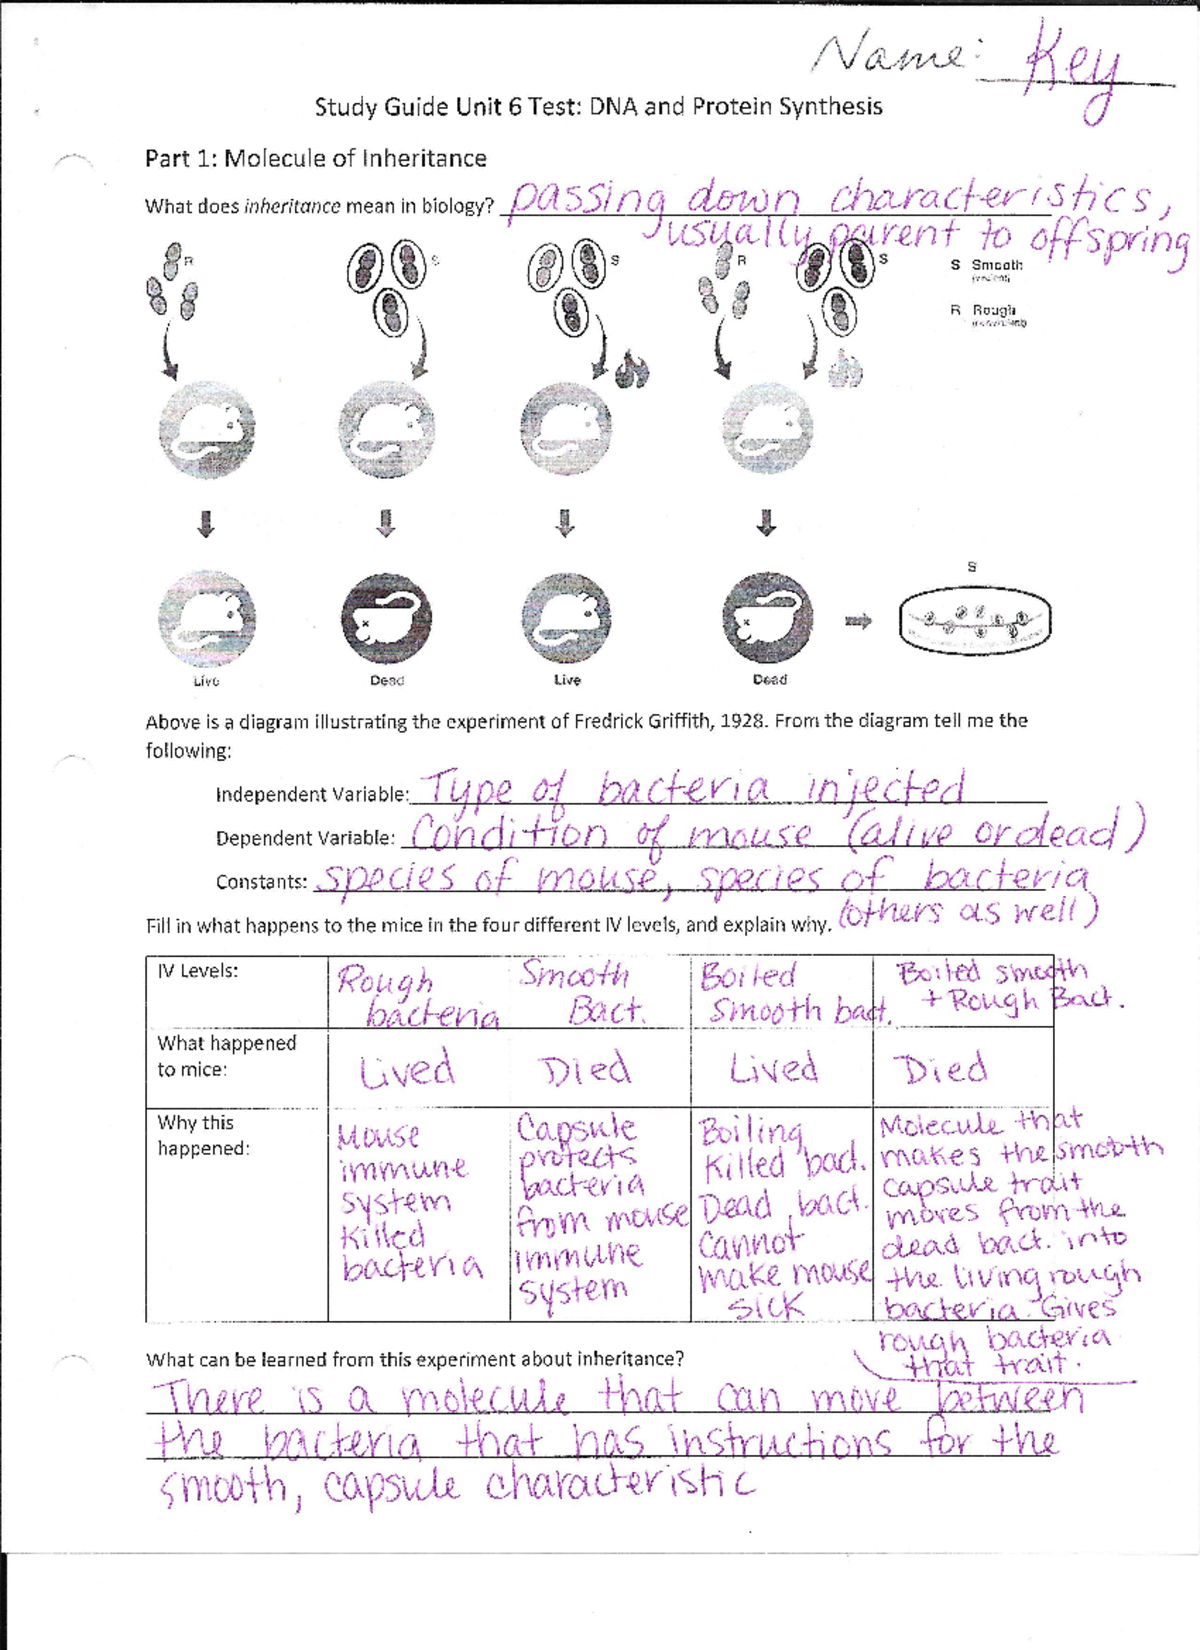 Name: Key
Study Guide Unit 6 Test: DNA and Protein Synthesis
Part 1: Molecule of Inheritance
What does inheritance mean in biology? passing down characteristics,
usually parent to offspring
R S S R S
S Smooth
(virulent)
R Rough
(nonvirulent)
S
Live Dead Live Dead
Above is a diagram illustrating the experiment of Fredrick Griffith, 1928. From the diagram tell me the
following:
Independent Variable: Type of bacteria injected
Dependent Variable: Condition of mouse (alive or dead)
Constants: species of mouse, species of bacteria
(others as well)
Fill in what happens to the mice in the four different IV levels, and explain why.
IV Levels:
Rough
bacteria
Smooth
Bact.
Boiled
Smooth bact.
Boiled smooth
+ Rough Bact.
What happened
to mice:
Lived
Died
Lived
Died
Why this
happened:
Mouse
immune
system
killed
bacteria
Capsule
protects
bacteria
from mouse
immune
system
Boiling
killed bact.
Dead bact.
cannot
make mouse
sick
Molecule that
makes the smooth
capsule trait
moves from the
dead bact. into
the living rough
bacteria. Gives
rough bacteria
that trait.
What can be learned from this experiment about inheritance?
There is a molecule that can move between
the bacteria that has instructions for the
smooth, capsule characteristic